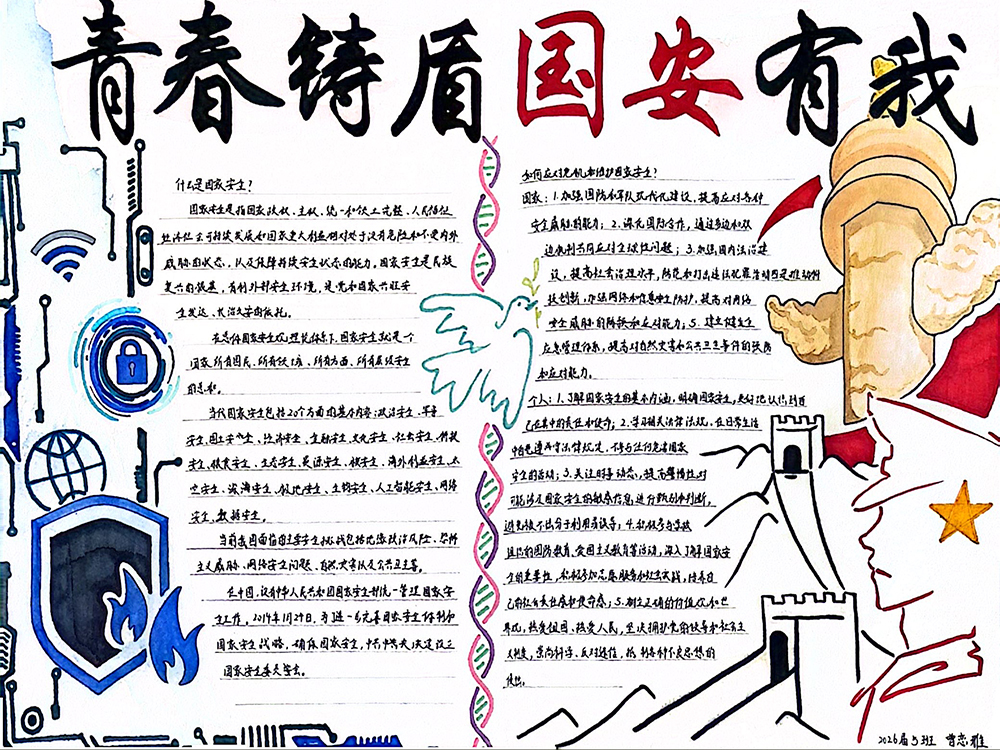 青春铸盾国安有我
什么是国家安全?
国家安全是指国家政权、主权、统一和领土完整、人民福祉
经济社会可持续发展和国家重大利益相对处于没有危险和不受内外
威胁的状态，以及保障持续安全状态的能力。国家安全是民族
复兴的根基，
生发达、长治久安的依托。
在总体国家安全观理论体系下，国家安全就是一个
国家所有国民、所有领域、所有方面、所有层级安全
的总和。
当代国家安全包括20个方面的基本内容：政治安全、军事
安全、国土安全、经济安全、金融安全、文化安全、社会安全、科技
安全、粮食安全、生态安全、资源安全、核安全、海外利益安全、太
空安全、深海安全、极地安全、生物安全、人工智能安全、网络
安全、数据安全。
当前我国面临的主要安全挑战包括
主义威胁、网络安全问题、自然灾害以及公共卫生等。
在中国，
工作。
国家安全战略，确保国家安全，中共中央决定设立
国家安全委员会。
如何应对危机和维护国家安全?
国家：1.加强国防和军队现代化建设，提高应对各种
安全威胁的能力；2.深化国际合作，通过多边和双
边机制共同应对全球性问题；3.加强国内法治建
设，提高社会治理水平，防范和打击违法犯罪活动
技创新，加强网络和信息安全防护，提高对网络
安全威胁的防御和应对能力；5.建立健全
应急管理体系，提高对自然灾害和公共卫生事件的预防
和应对能力。
个人：1.了解国家安全的基本内涵，明确国家安全，
己在其中的责任和使命；2.学习相关法律法规，在日常生活
中自觉遵守法律规定，不参与任何危害国家
安全的活动；3.关注时事动态，提高警惕性，对
可能涉及国家安全的敏感信息进行甄别和判断，
避免被不法分子利用或误导；4.积极参与学校
组织的国防教育、爱国主义教育等活动，深入了解国家安
全的重要性，积极参加志愿服务和社会实践，培养自
己的社会责任感和使命感；5.树立正确的价值观和世
界观，热爱祖国、热爱人民，坚决拥护党的领导和社会主
义制度，崇尚科学、反对迷信，抵制各种不良思想的
侵蚀。
2026届5班